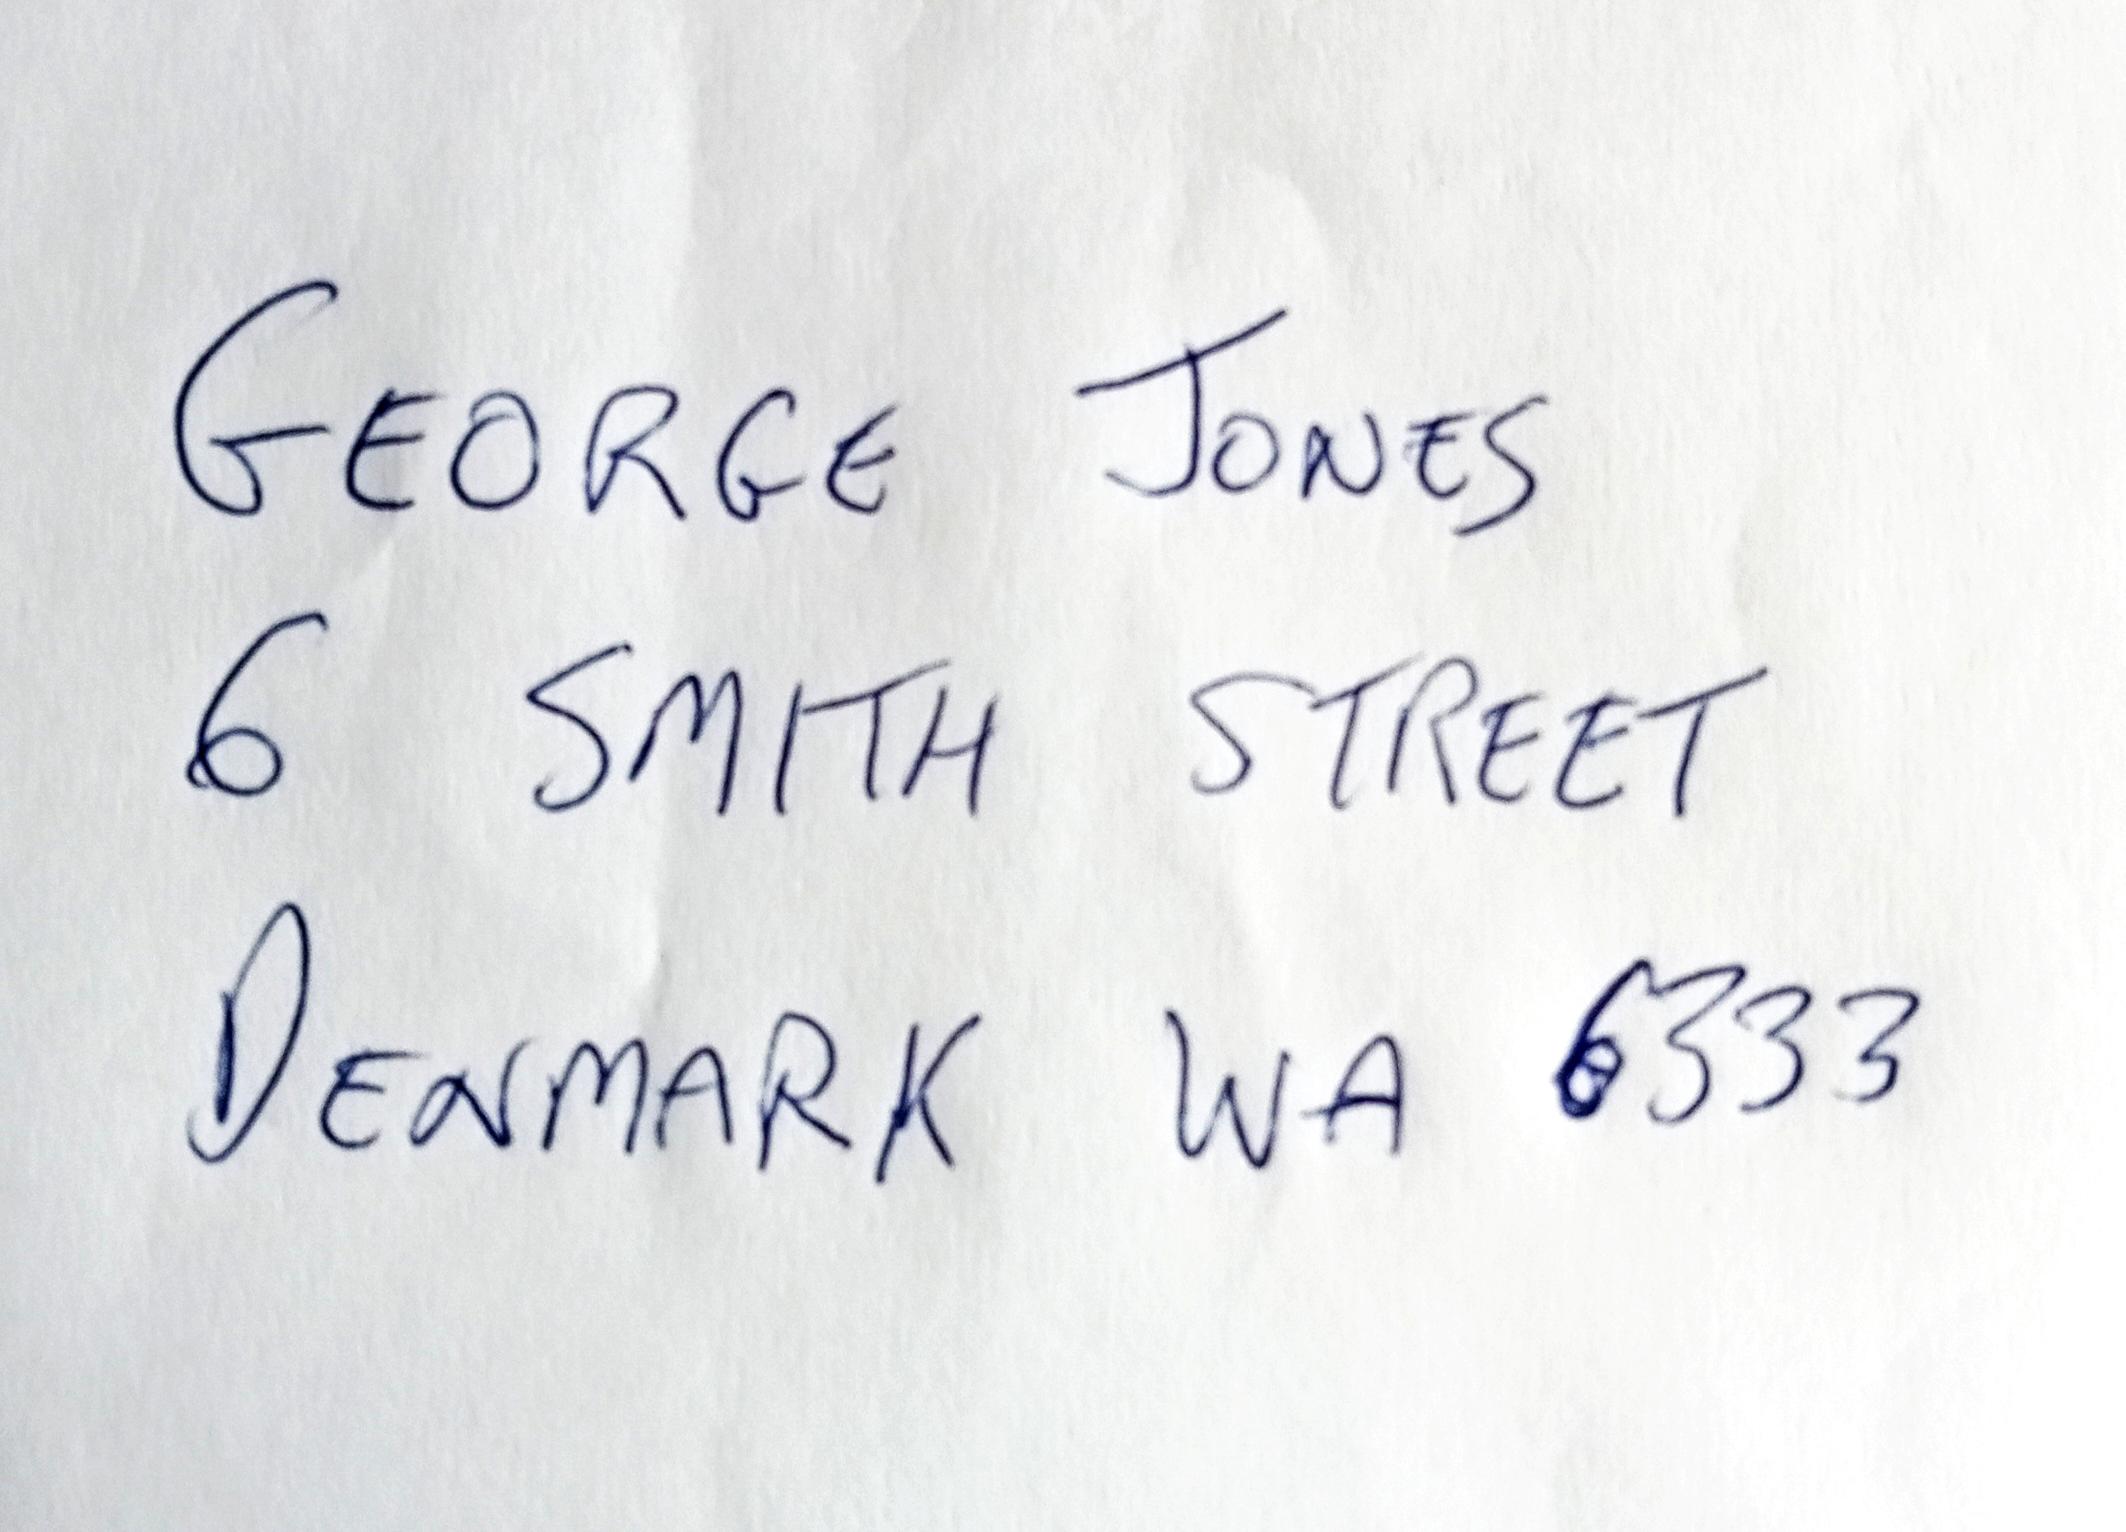 GEORGE JONES
6 SMITH STREET
DENMARK WA 6333